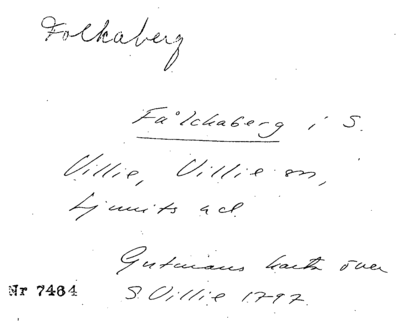 Folkaberg
Fålchaberg i S.
Villie, Villie sn,
Ljunits hd.
Gutmans karta över
S. Villie 1797.
Nr 7464